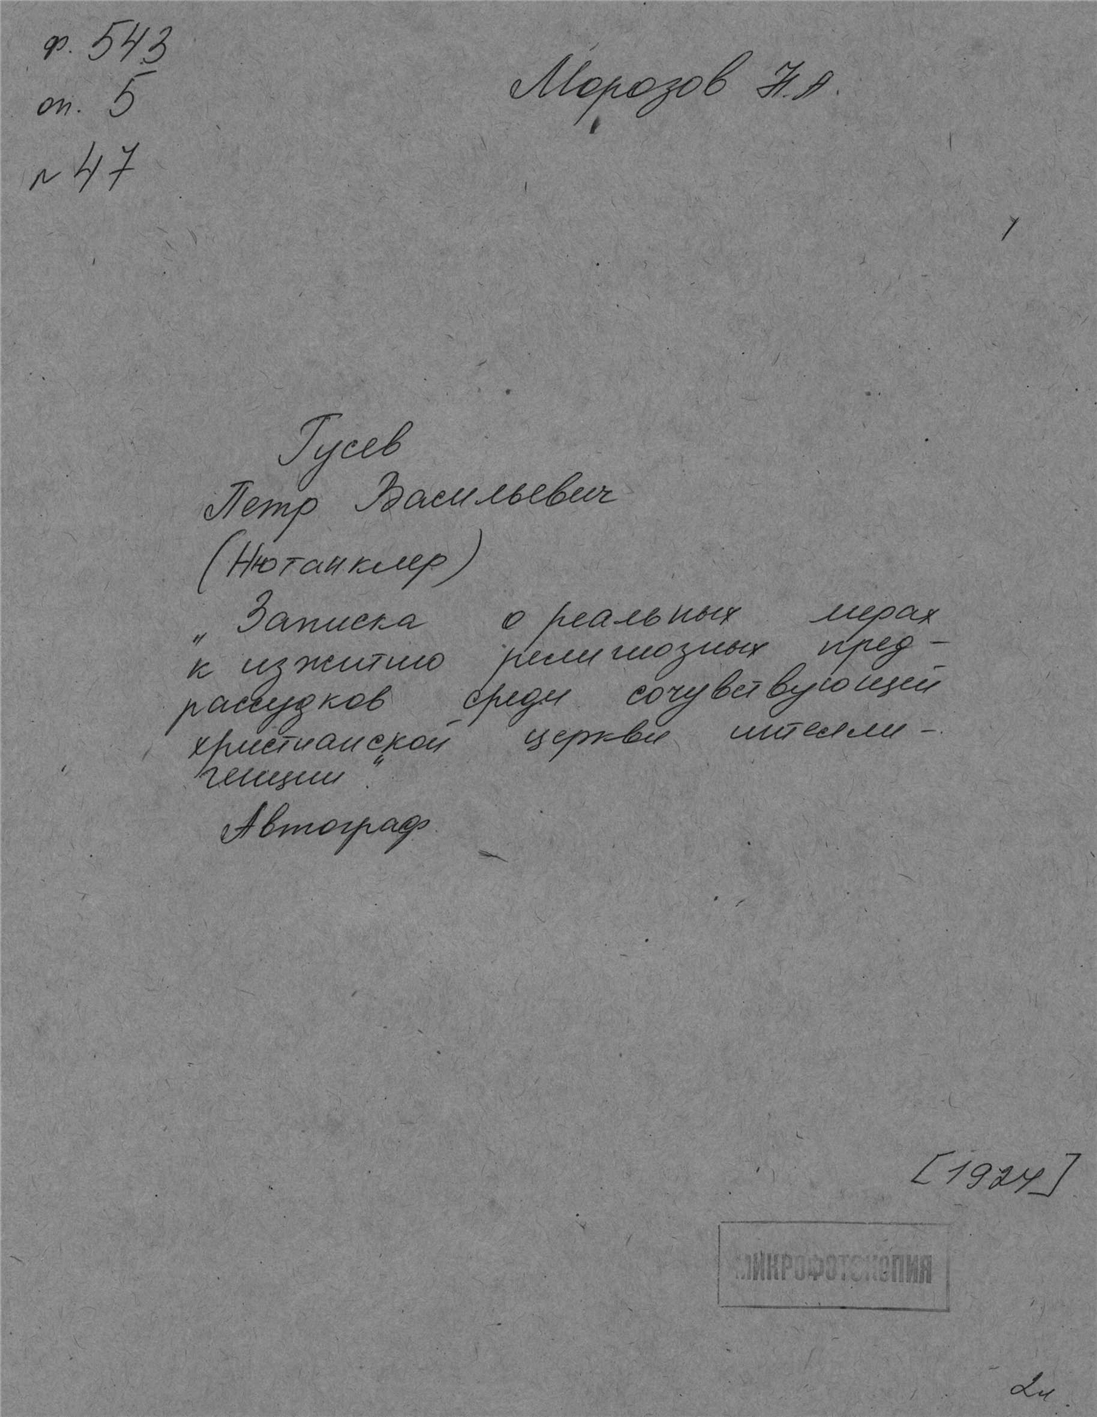 ф. 543
оп. 5
№ 47
Морозов Н.А.
1
Гусев
Петр Васильевич
(Нютанклер)
„Записка о реальных мерах
к изжитию религиозных пред-
рассудков среди сочувствующей
христианской церкви интелли-
генции".
Автограф
[1924]
МИКРОФОТОКОПИЯ
2л.